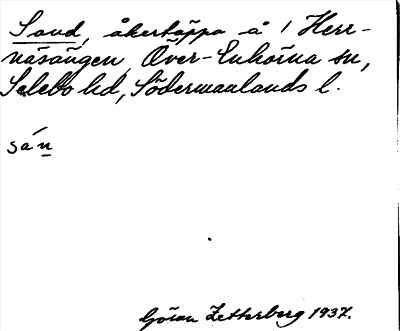 Sand, åkertäppa å 1 Herr-
näsängen, Över-Enhörna sn,
Selebo hd, Södermanlands l.
sán
Göran Zetterberg 1937.